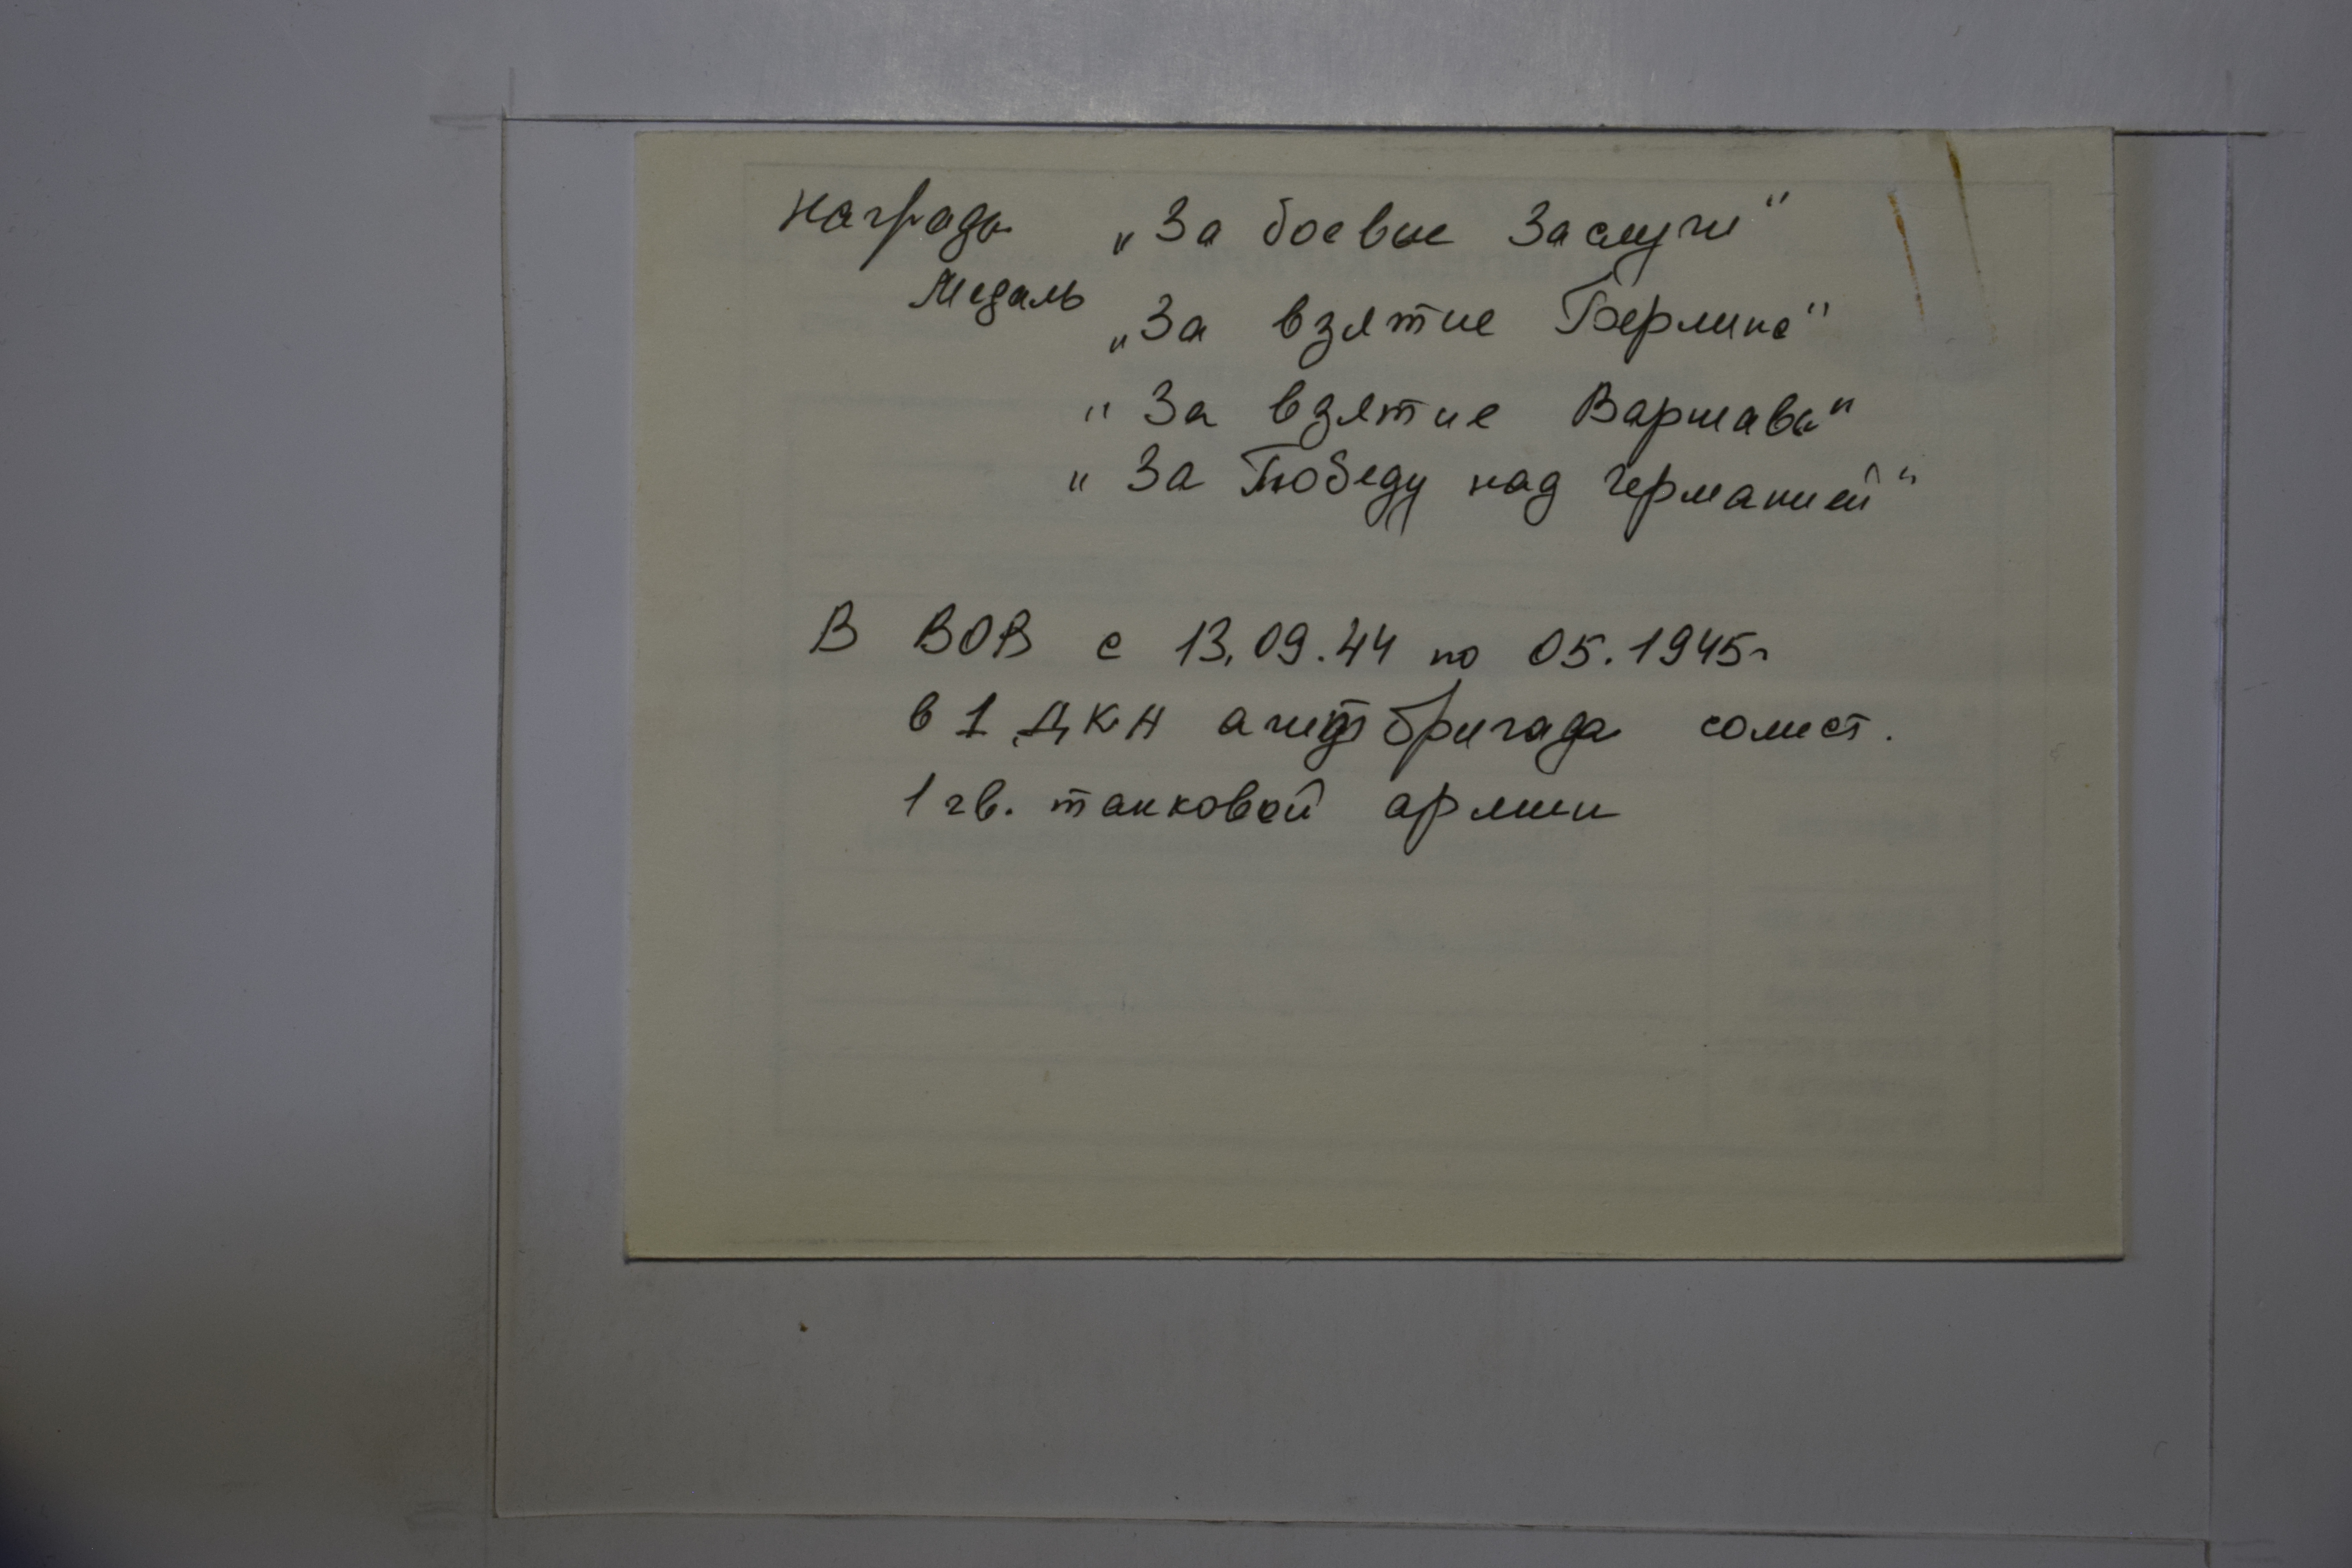 Награда „За боевые Заслуги"
Медаль
„За взятие Берлина"
"За взятие Варшавы"
"За Победу над Германией"
В ВОВ с 13.09.44 по 05.1945г
в 1 ДКА агитбригада солист.
1 гв. танковой армии